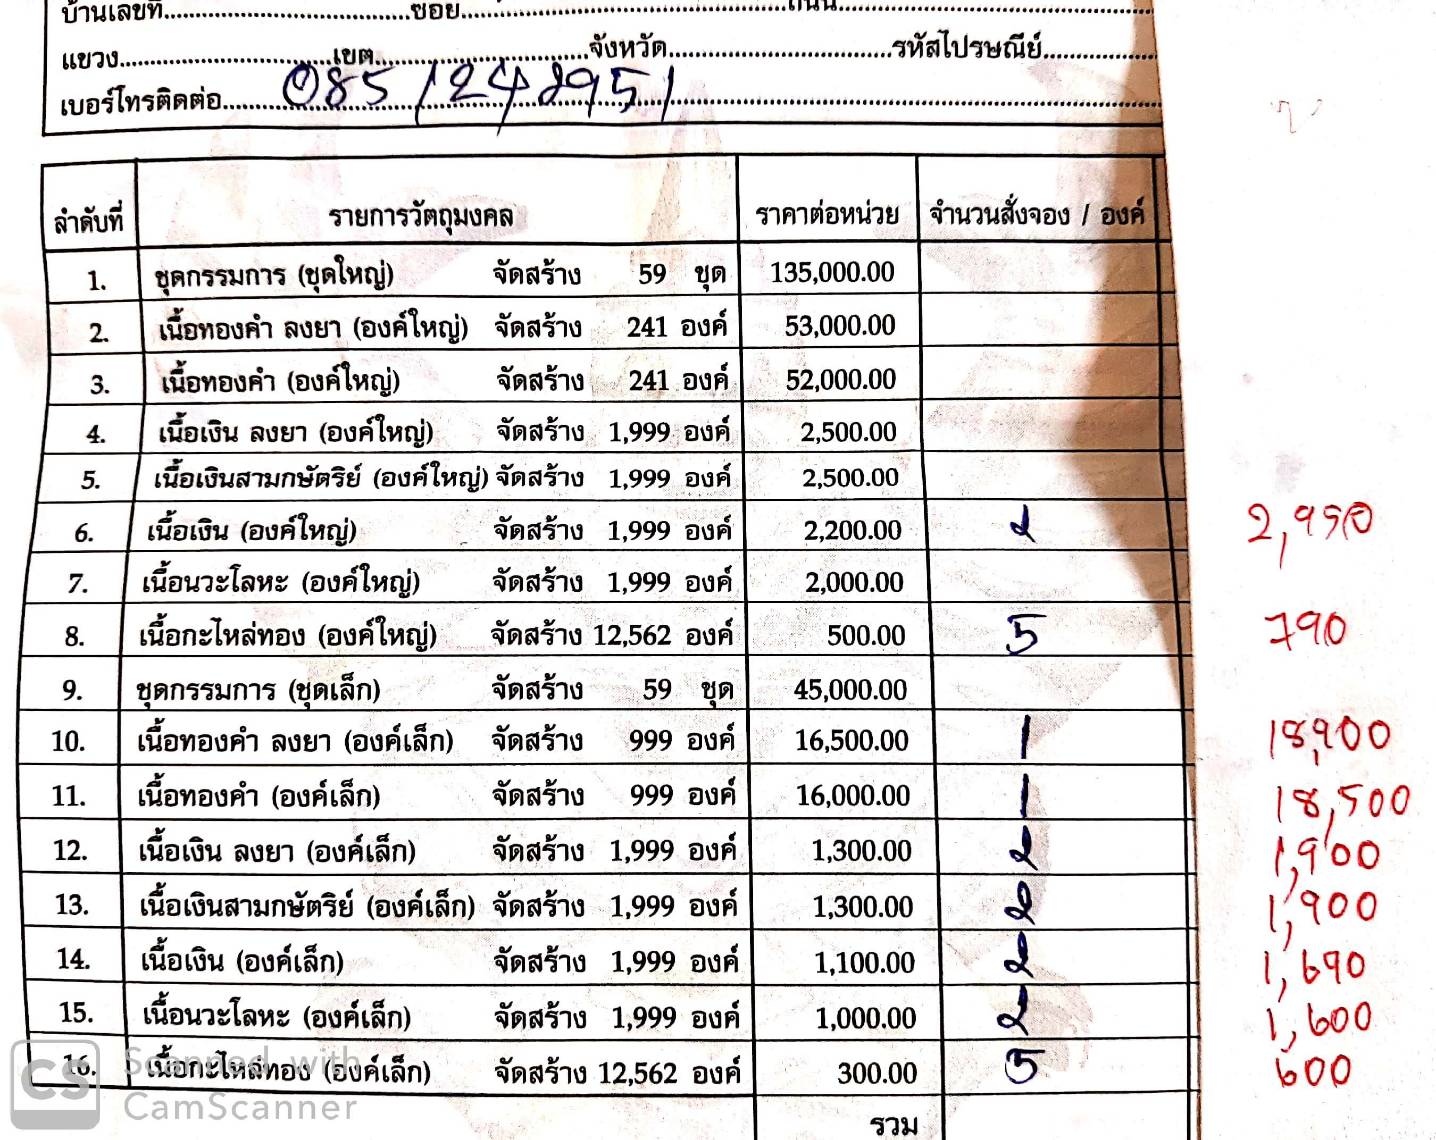 บ้านเลขที่..............................ซอย..............................ถนน..............................
แขวง..............................เขต..............................จังหวัด..............................รหัสไปรษณีย์..............................
เบอร์โทรติดต่อ.....0851242951.....
ลำดับที่ รายการวัตถุมงคล ราคาต่อหน่วย จำนวนสั่งจอง / องค์
1. ชุดกรรมการ (ชุดใหญ่) จัดสร้าง 59 ชุด 135,000.00
2. เนื้อทองคำ ลงยา (องค์ใหญ่) จัดสร้าง 241 องค์ 53,000.00
3. เนื้อทองคำ (องค์ใหญ่) จัดสร้าง 241 องค์ 52,000.00
4. เนื้อเงิน ลงยา (องค์ใหญ่) จัดสร้าง 1,999 องค์ 2,500.00
5. เนื้อเงินสามกษัตริย์ (องค์ใหญ่) จัดสร้าง 1,999 องค์ 2,500.00
6. เนื้อเงิน (องค์ใหญ่) จัดสร้าง 1,999 องค์ 2,200.00 2 2,950
7. เนื้อนวะโลหะ (องค์ใหญ่) จัดสร้าง 1,999 องค์ 2,000.00
8. เนื้อกะไหล่ทอง (องค์ใหญ่) จัดสร้าง 12,562 องค์ 500.00 5 790
9. ชุดกรรมการ (ชุดเล็ก) จัดสร้าง 59 ชุด 45,000.00
10. เนื้อทองคำ ลงยา (องค์เล็ก) จัดสร้าง 999 องค์ 16,500.00 1 18,900
11. เนื้อทองคำ (องค์เล็ก) จัดสร้าง 999 องค์ 16,000.00 1 18,500
12. เนื้อเงิน ลงยา (องค์เล็ก) จัดสร้าง 1,999 องค์ 1,300.00 2 1,900
13. เนื้อเงินสามกษัตริย์ (องค์เล็ก) จัดสร้าง 1,999 องค์ 1,300.00 2 1,900
14. เนื้อเงิน (องค์เล็ก) จัดสร้าง 1,999 องค์ 1,100.00 2 1,690
15. เนื้อนวะโลหะ (องค์เล็ก) จัดสร้าง 1,999 องค์ 1,000.00 2 1,600
16. เนื้อกะไหล่ทอง (องค์เล็ก) จัดสร้าง 12,562 องค์ 300.00 5 600
รวม
CS Scanned with
CamScanner